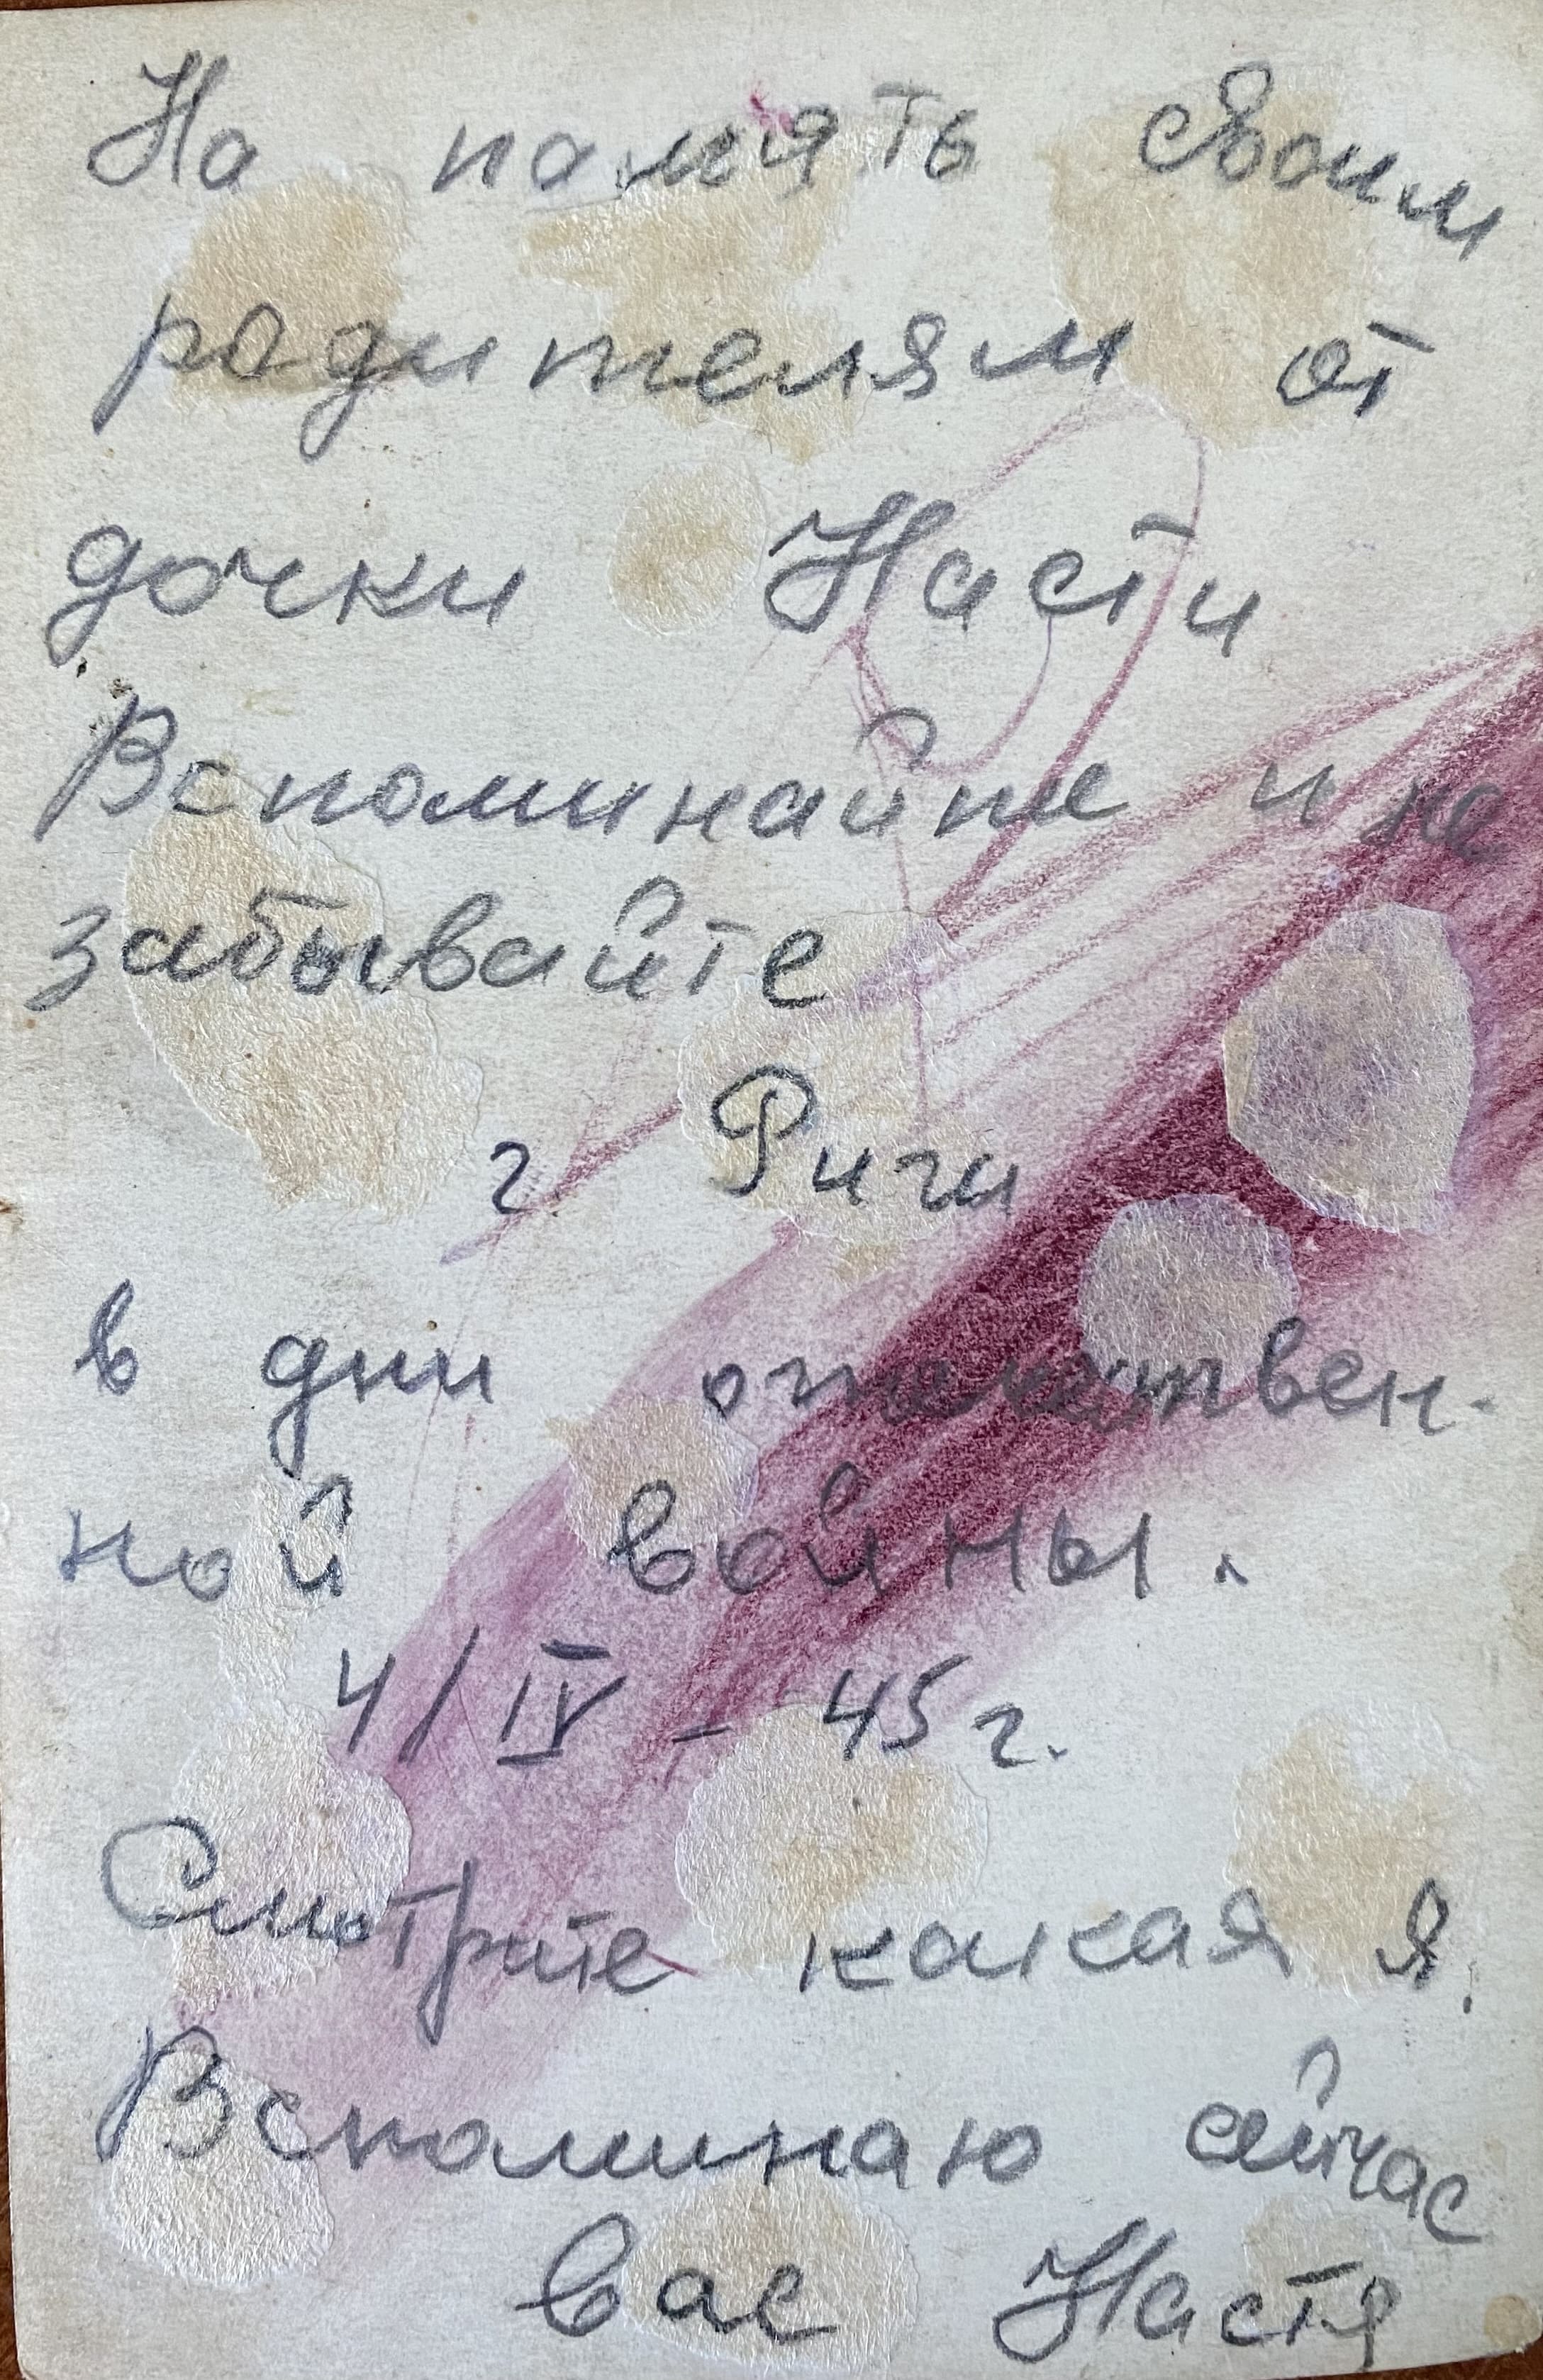 На память своим
родителям от
дочки Насти
Вспоминайте и не
забывайте
г. Рига
в дни отечествен-
ной войны.
4/IV - 45 г.
Смотрите какая я.
Вспоминаю сейчас
вас Настя